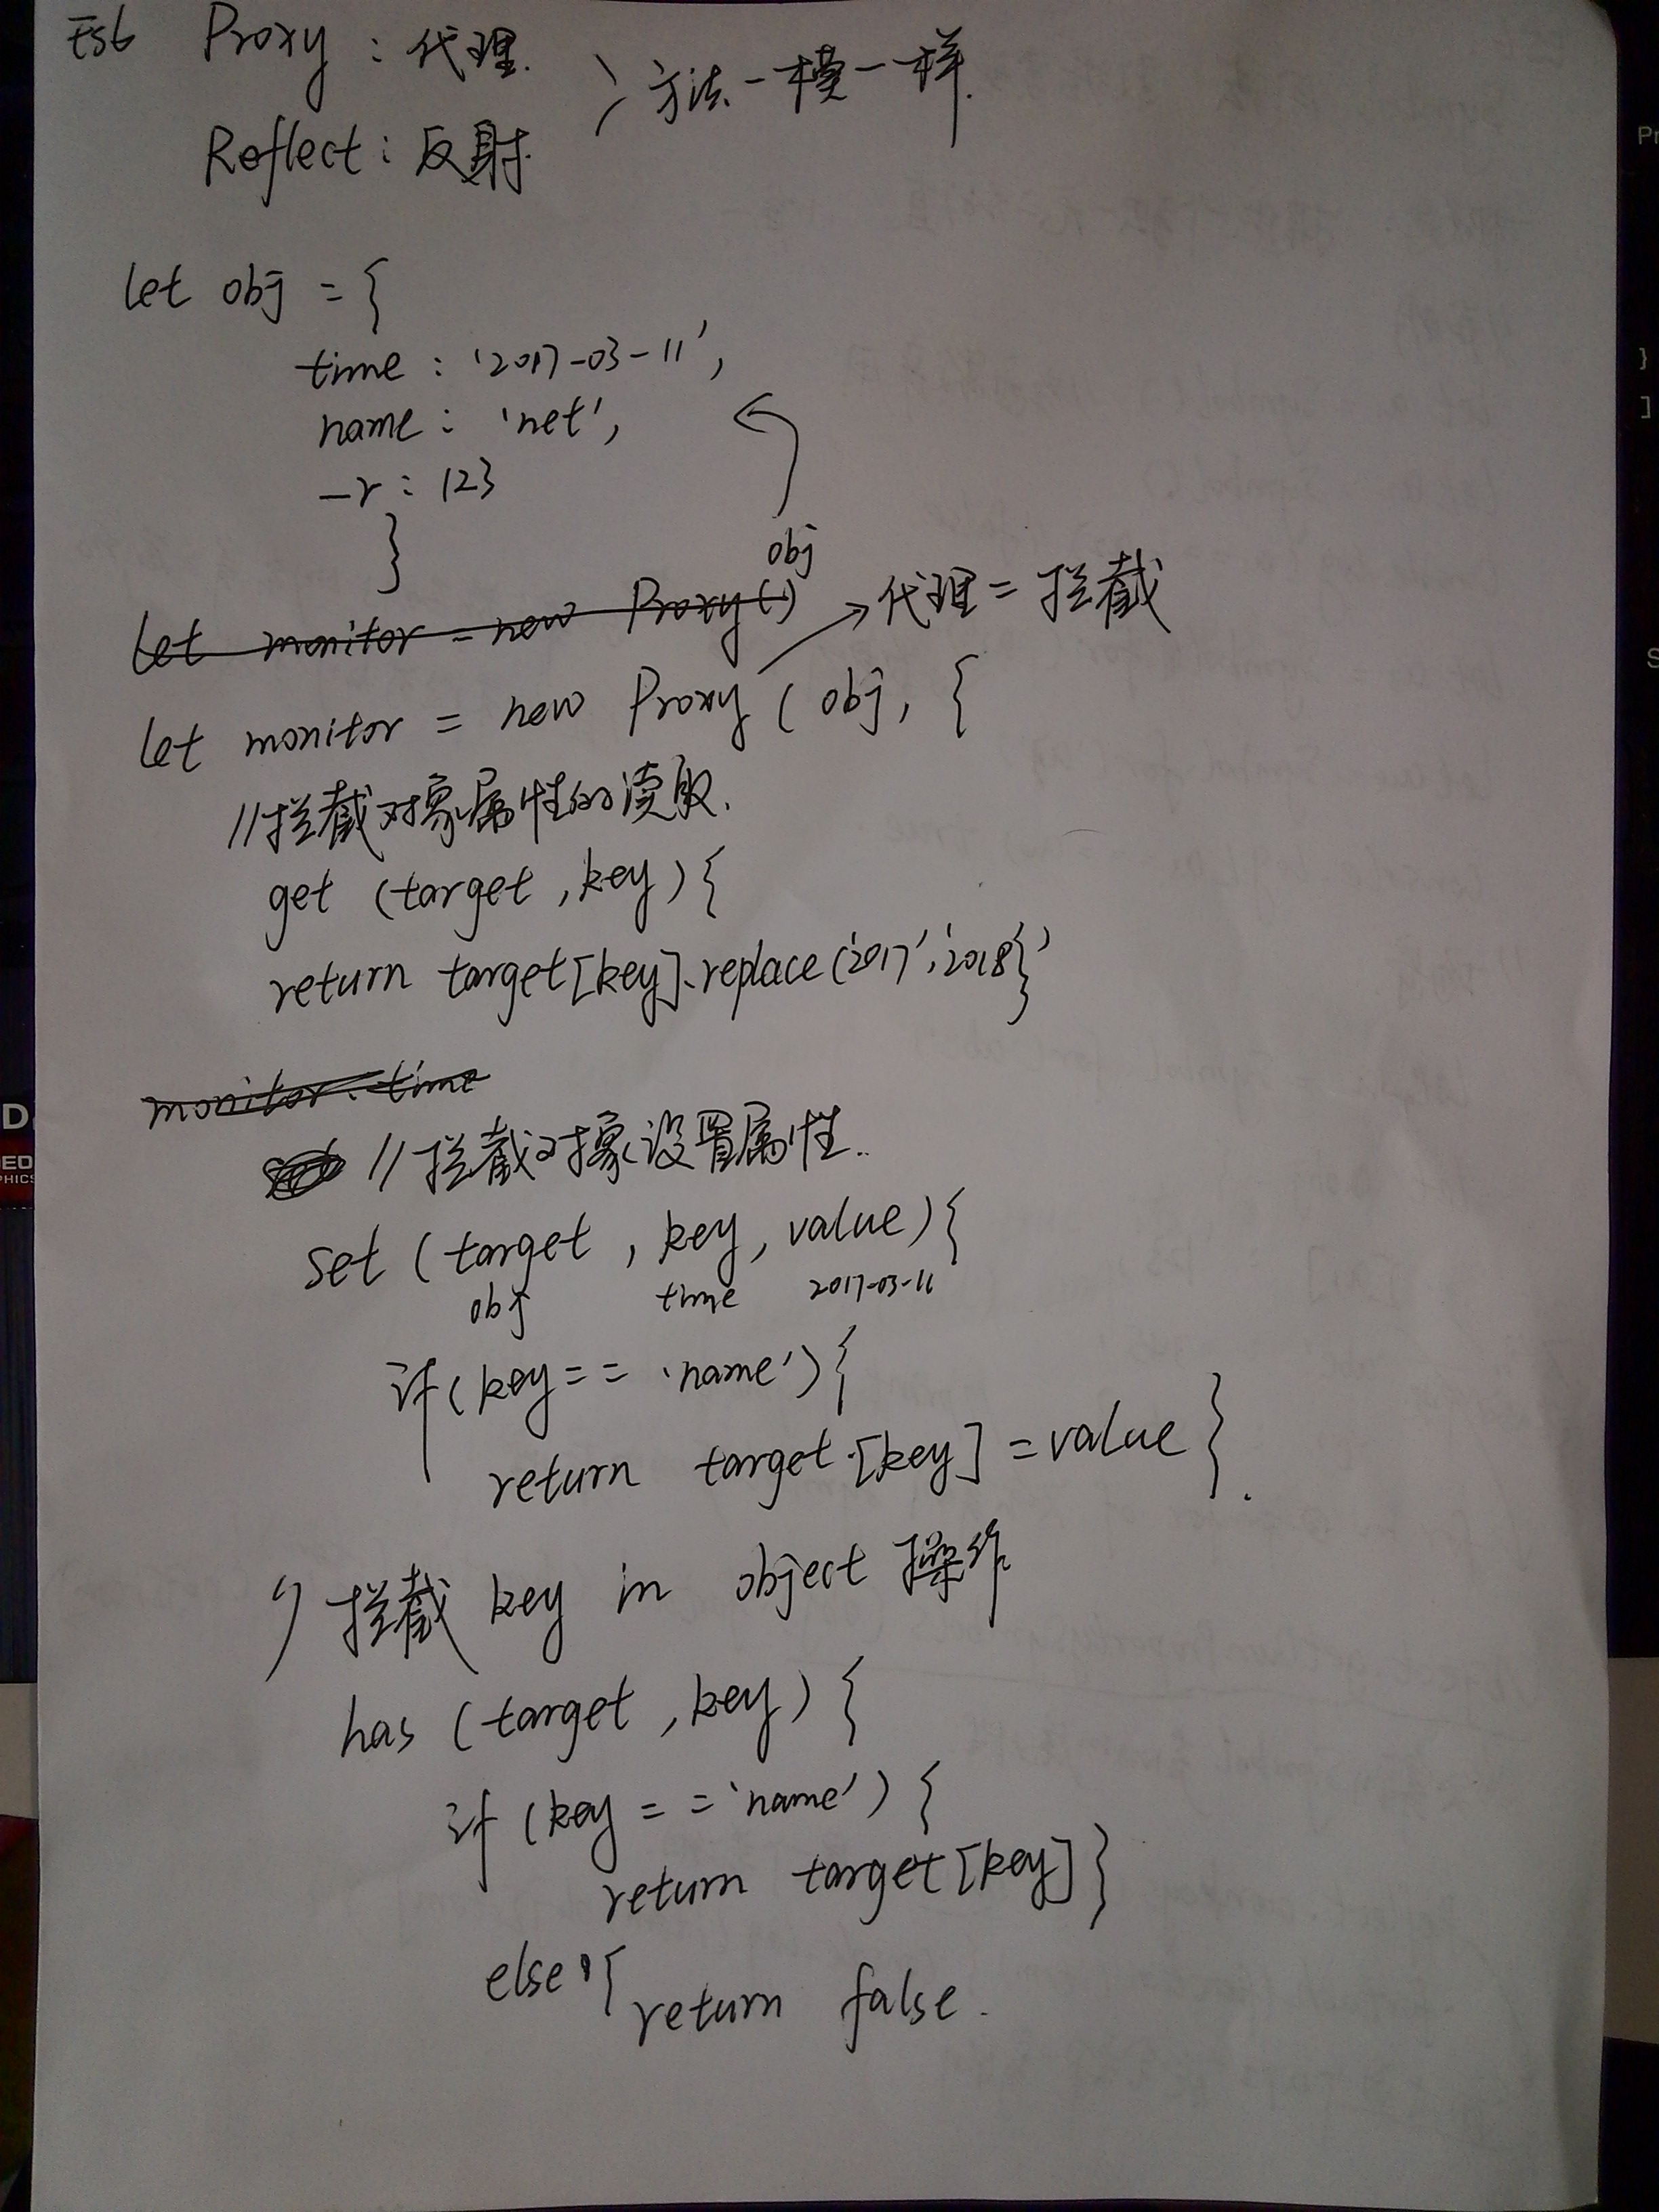 ES6 Proxy : 代理.
Reflect : 反射.
方法一模一样.
let obj = {
time : '2017-03-11',
name : 'net',
_r : 123
}
obj
let monitor = new Proxy()
代理 = 拦截
let monitor = new Proxy ( obj, {
//拦截对象属性的读取.
get (target , key) {
return target[key].replace('2017','2018')}
monitor.time
//拦截对象设置属性.
set (target , key, value) {
obj time 2017-03-11
if (key == 'name') {
return target.[key] = value }.
// 拦截 key in object 操作
has (target , key) {
if (key == 'name') {
return target[key] }
else {
return false.